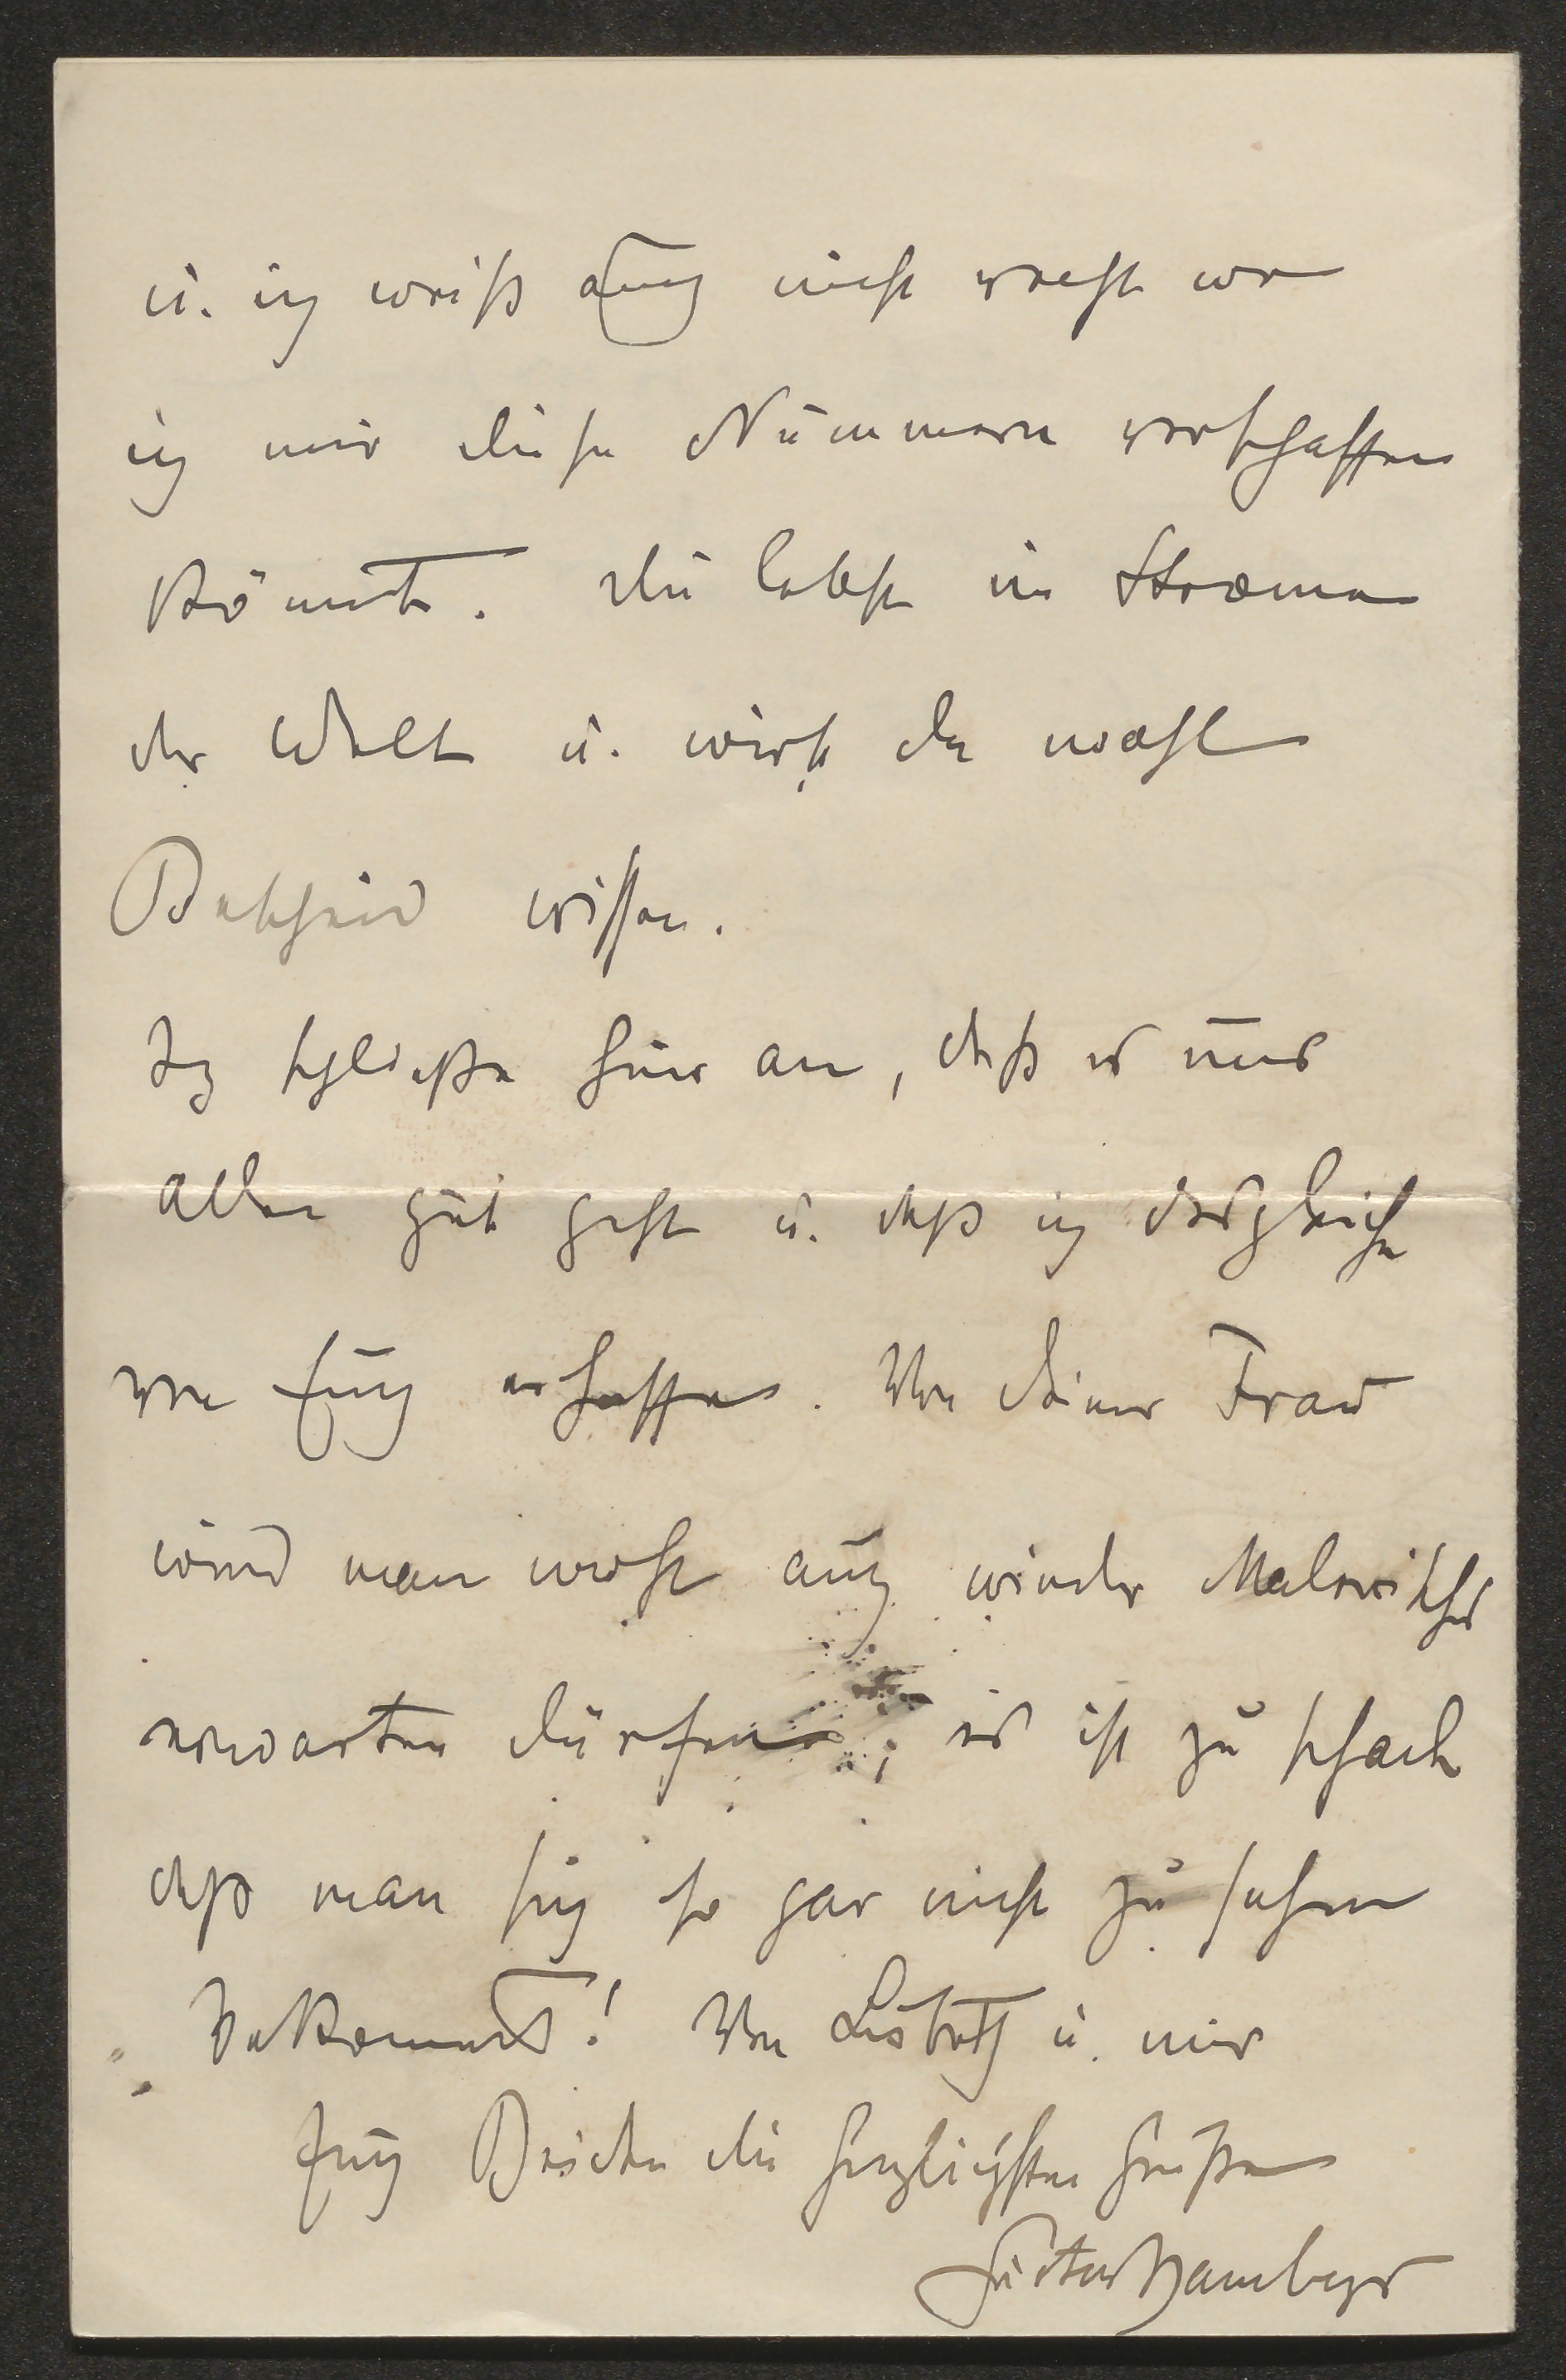 u. ich weiß auch nicht recht wo
ich mir diese Nummern verschaffen
könnte. Du lebst im Strome
der Welt u. wirst da wohl
Bescheid wissen.
Ich schließe hier an, daß es uns
allen gut geht u. daß ich desgleichen
von Euch erhoffe. Von Deiner Frau
wird man wohl auch wieder Malerisches
erwarten dürfen; es ist zu schade
daß man sich so gar nicht zu sehen
bekommt! Von Lisbeth u. mir
Euch Beiden die herzlichsten Grüße
Gustav Schamberger